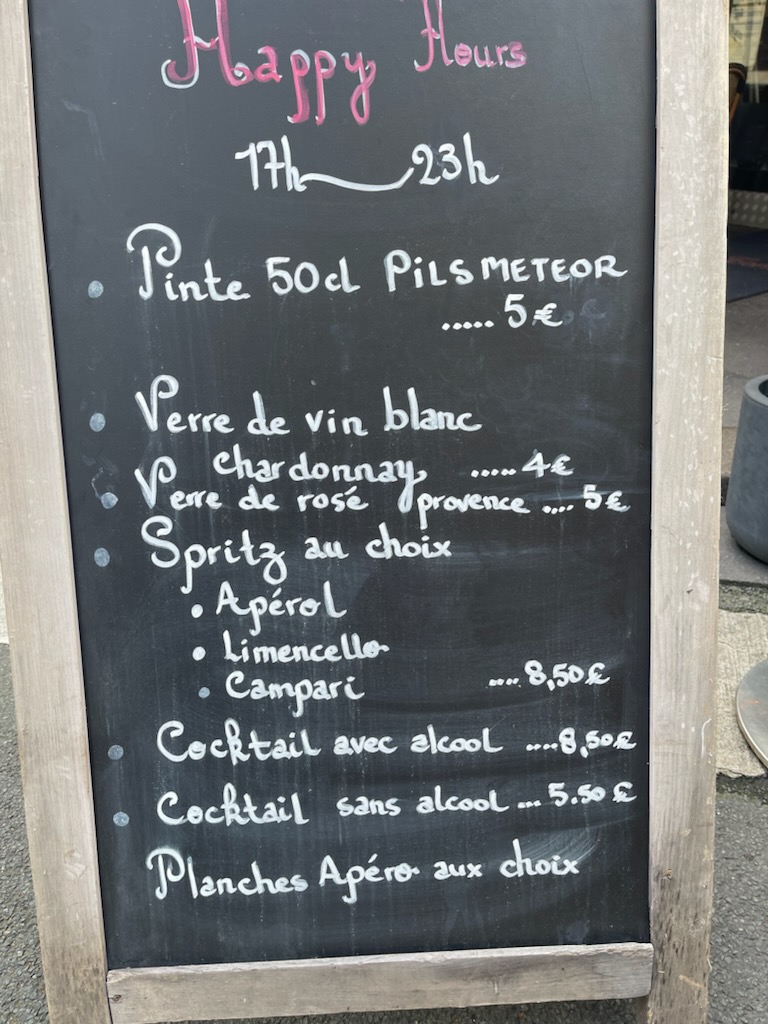 Happy Hours
17h 23h
• Pinte 50cl PILS METEOR
..... 5€
• Verre de vin blanc
Chardonnay ..... 4€
• Verre de rosé provence .... 5€
• Spritz au choix
• Apérol
• Limencello
• Campari .... 8,50€
• Cocktail avec alcool ....8,50€
• Cocktail sans alcool ... 5.50€
Planches Apéro aux choix